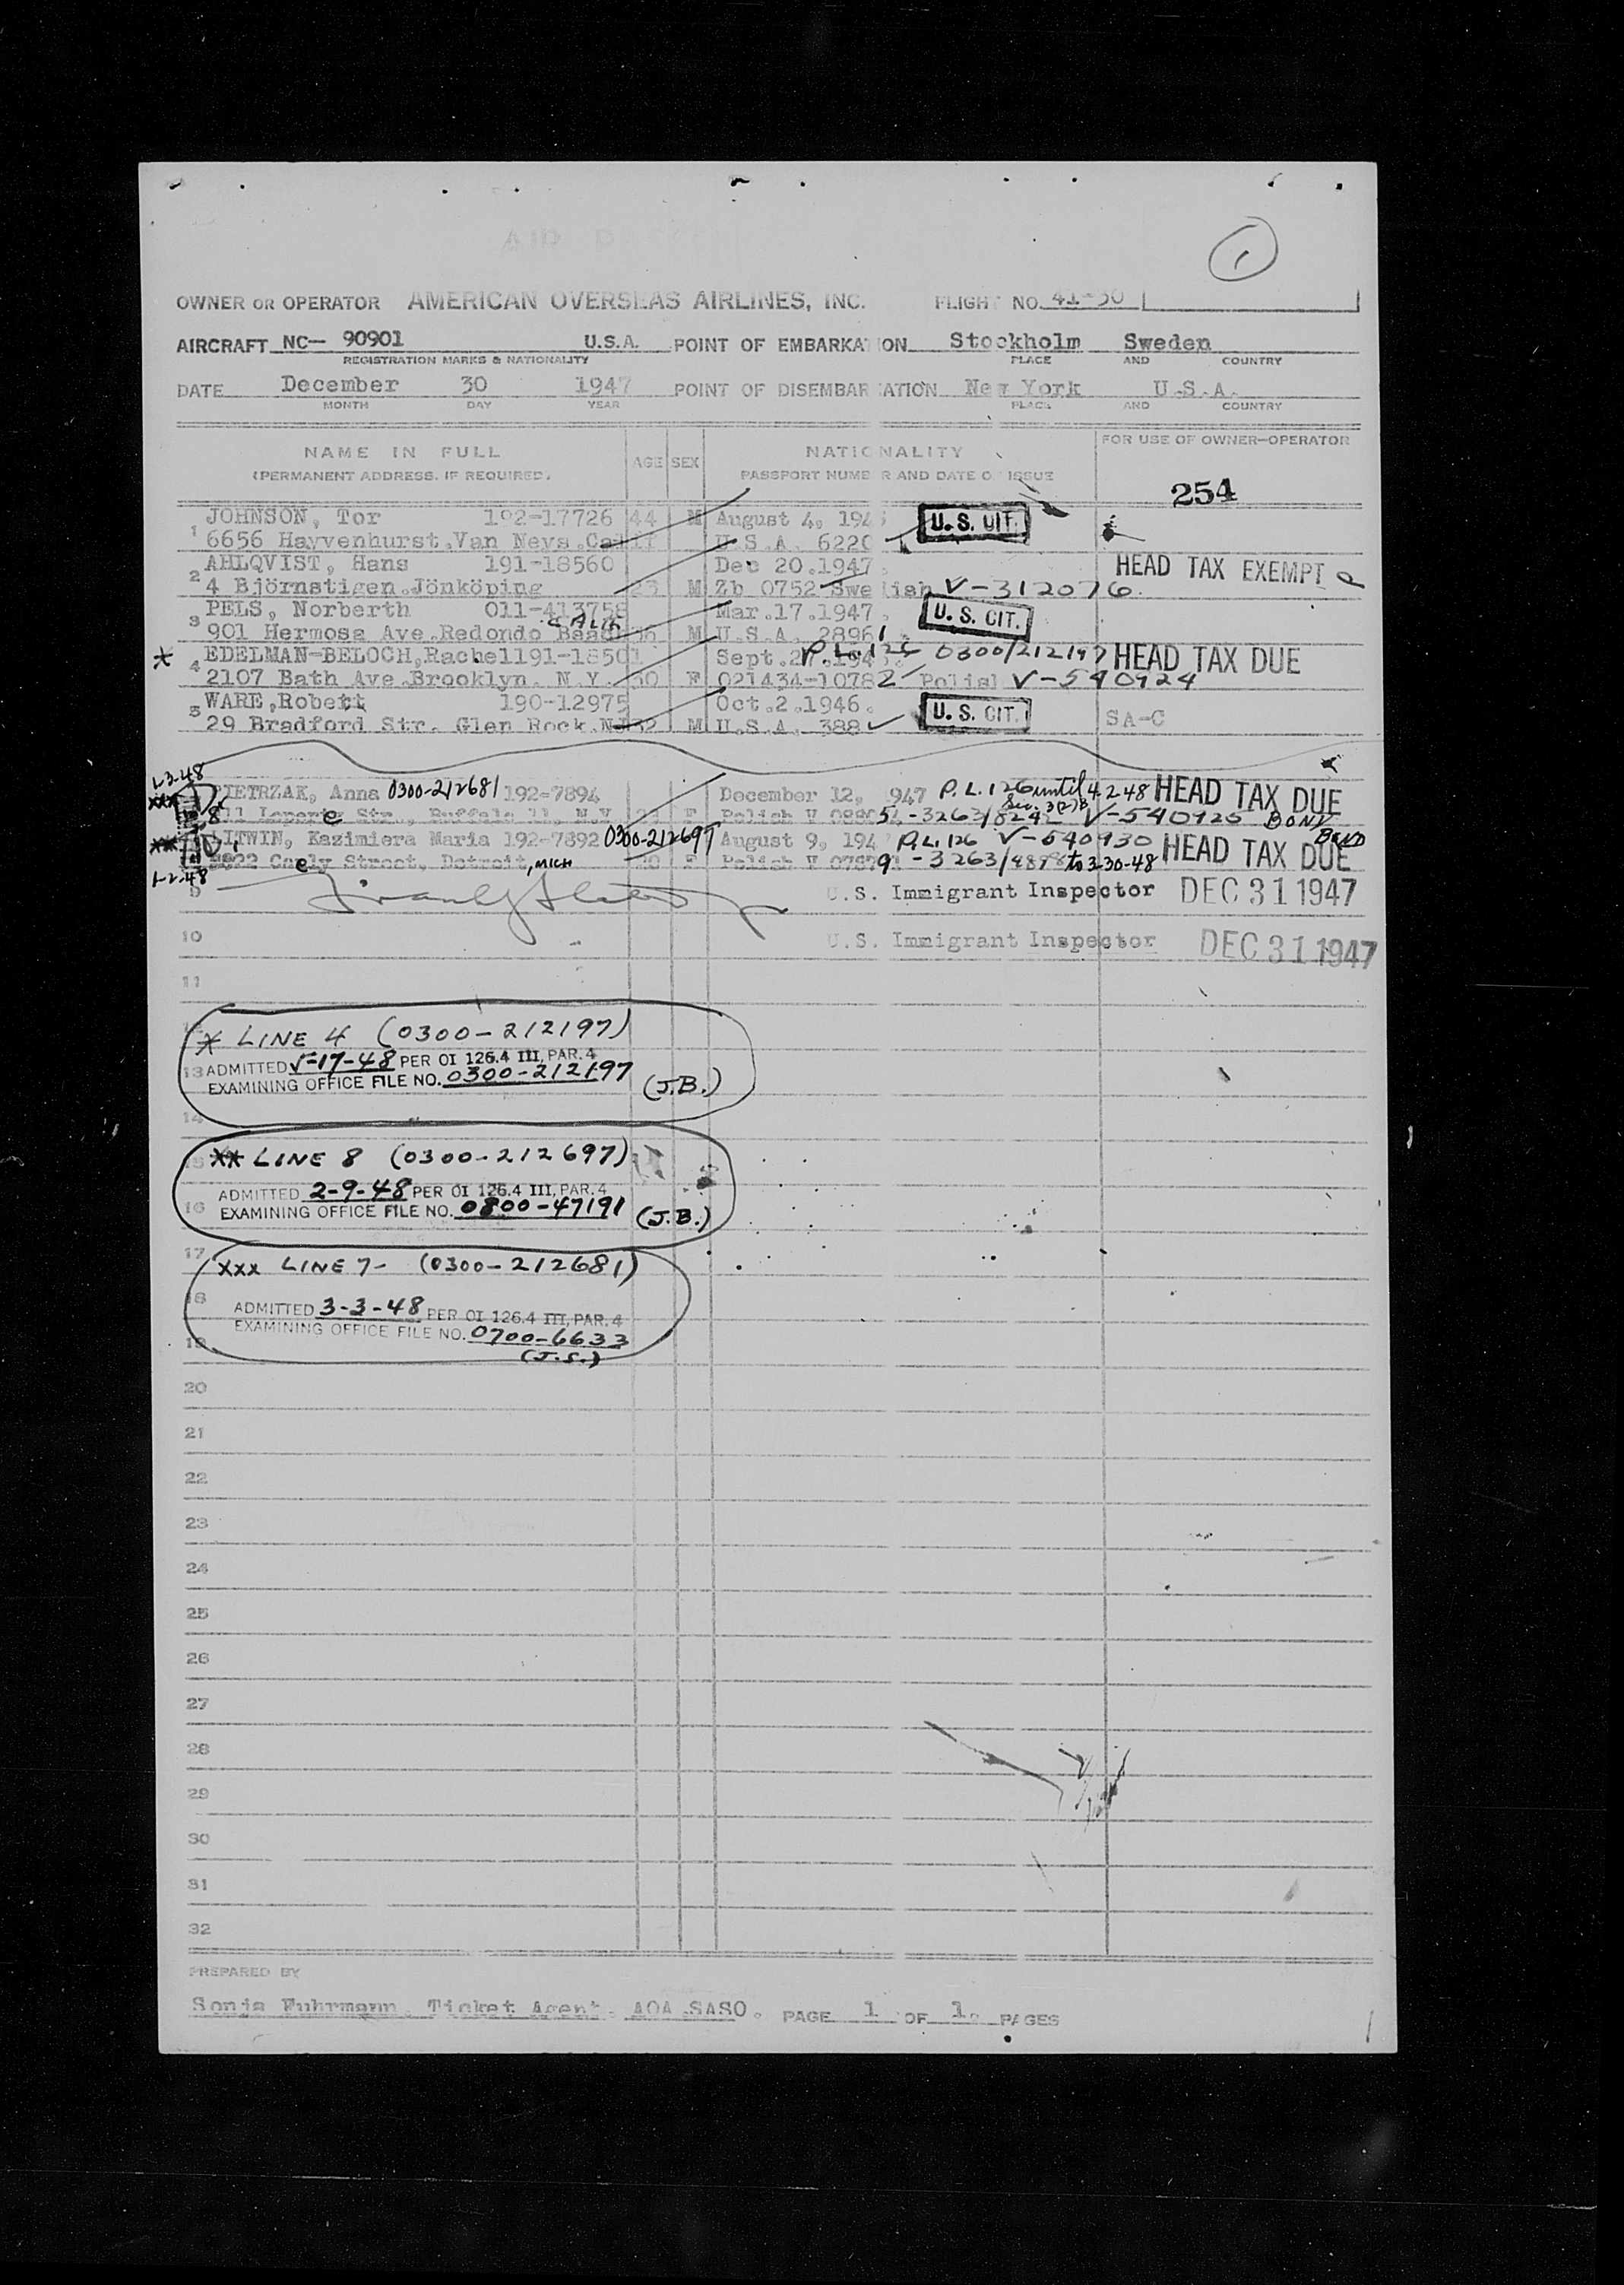 1
OWNER OR OPERATOR AMERICAN OVERSEAS AIRLINES, INC. FLIGHT NO. 41-30
AIRCRAFT NC— 90901 U.S.A. POINT OF EMBARKATION Stockholm Sweden
REGISTRATION MARKS & NATIONALITY PLACE AND COUNTRY
DATE December 30 1947 POINT OF DISEMBARKATION New York U.S.A.
MONTH DAY YEAR PLACE AND COUNTRY
NAME IN FULL AGE SEX NATIONALITY FOR USE OF OWNER-OPERATOR
(PERMANENT ADDRESS, IF REQUIRED) PASSPORT NUMBER AND DATE OF ISSUE
254
JOHNSON, Tor 192-17726 44 M August 4, 194 U.S. CIT.
1 6656 Hayvenhurst.Van Neys.Ca U.S.A. 6220
AHLQVIST, Hans 191-18560 Dec 20.1947. HEAD TAX EXEMPT
2 4 Björnstigen.Jönköping 23 M Zb 0752 Swedish V-312076
PELS, Norberth 011-413758 Mar.17.1947. U.S. CIT.
CALIF
3 901 Hermosa Ave.Redondo Beach M U.S.A. 28961
* EDELMAN-BELOCH,Rachel 191-18501 Sept.27.194 P.L. 126 0300/212197 HEAD TAX DUE
4 2107 Bath Ave.Brooklyn. N.Y. 50 F 021434-10782 Polish V-540924
WARE,Robert 190-12975 Oct.2.1946. U.S. CIT. SA-C
5 29 Bradford Str. Glen Rock.NJ 32 M U.S.A. 388
1-3-48
xxx PIETRZAK, Anna 0300-212681 192-7894 December 12, 1947 P.L. 126 until 4.2.48 HEAD TAX DUE
Sec. 3(2)B
Str., Buffalo 11, N.Y. F Polish V 5-3263/824 V-540925 BOND
xx LITWIN, Kazimiera Maria 192-7892 0300-212697 August 9, 194 P.L. 126 V-540930 HEAD TAX DUE BOND
Street, Detroit, MICH F Polish V 9-3263/ to 3-30-48
1-2-48
9 U.S. Immigrant Inspector DEC 31 1947
10 U.S. Immigrant Inspector DEC 31 1947
11
* LINE 4 (0300-212197)
13 ADMITTED 5-17-48 PER OI 126.4 III, PAR. 4
EXAMINING OFFICE FILE NO. 0300-212197 (J.B.)
14
15 ** LINE 8 (0300-212697)
ADMITTED 2-9-48 PER OI 126.4 III, PAR. 4
16 EXAMINING OFFICE FILE NO. 0800-47191 (J.B.)
17
xxx LINE 7- (0300-212681)
18 ADMITTED 3-3-48 PER OI 126.4 III, PAR. 4
19 EXAMINING OFFICE FILE NO. 0700-6633
(J.S.)
20
21
22
23
24
25
26
27
28
29
30
31
32
PREPARED BY
Sonja Fuhrmann. Ticket Agent. AOA.SASO. PAGE 1 OF 1. PAGES